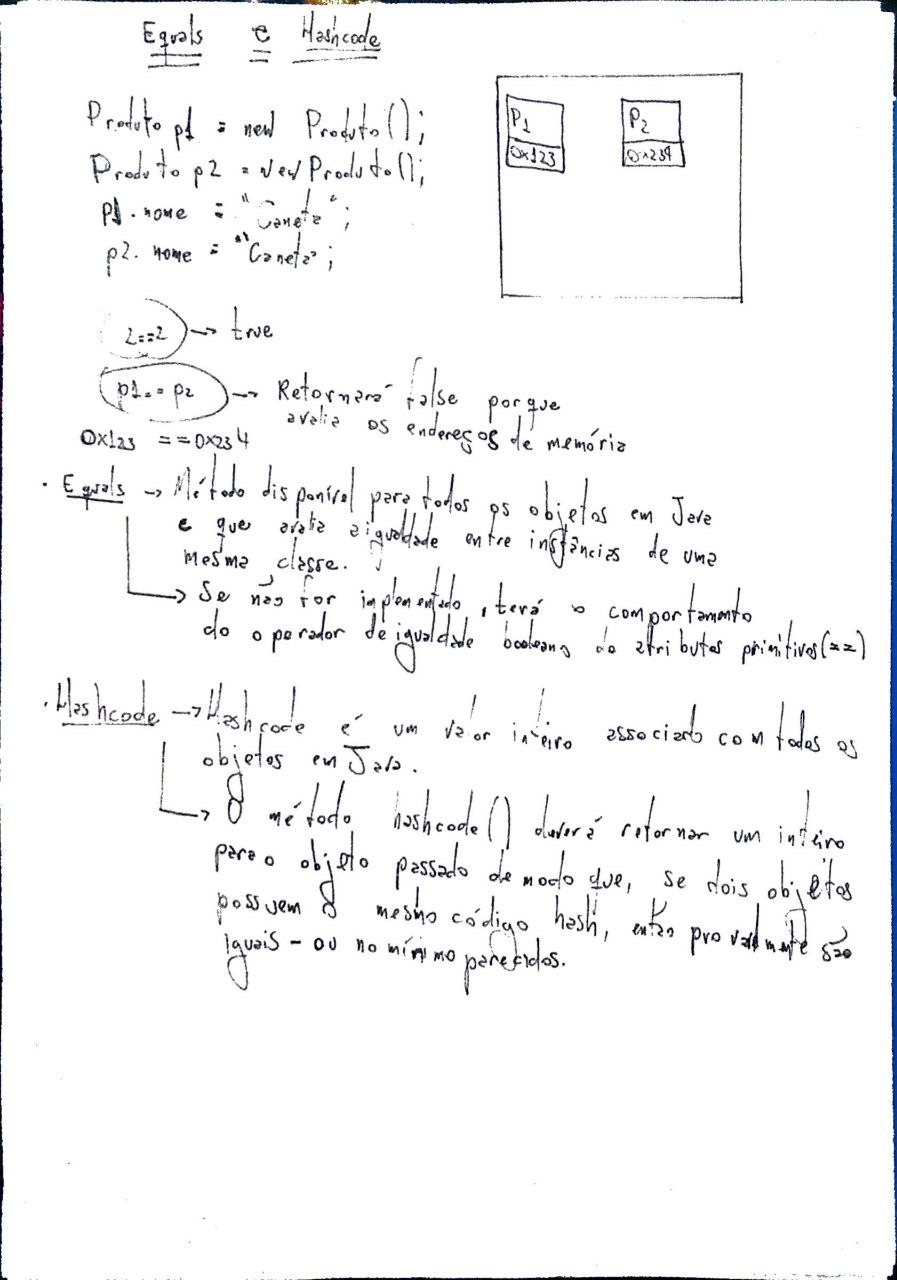 Equals e Hashcode
Produto p1 = new Produto();
Produto p2 = new Produto();
p1.nome = "Caneta";
p2.nome = "Caneta";
P1
0x123
P2
0x234
2==2 → true
p1 == p2 → Retornará false porque
avalia os endereços de memória
0x123 == 0x234
· Equals → Método disponível para todos os objetos em Java
e que avalia a igualdade entre instâncias de uma
mesma classe.
→ Se não for implementado, terá o comportamento
do operador de igualdade booleano de atributos primitivos(==)
· Hashcode → Hashcode é um valor inteiro associado com todos os
objetos em Java.
→ O método hashcode() deverá retornar um inteiro
para o objeto passado de modo que, se dois objetos
possuem o mesmo código hash, então provavelmente são
iguais - ou no mínimo parecidos.